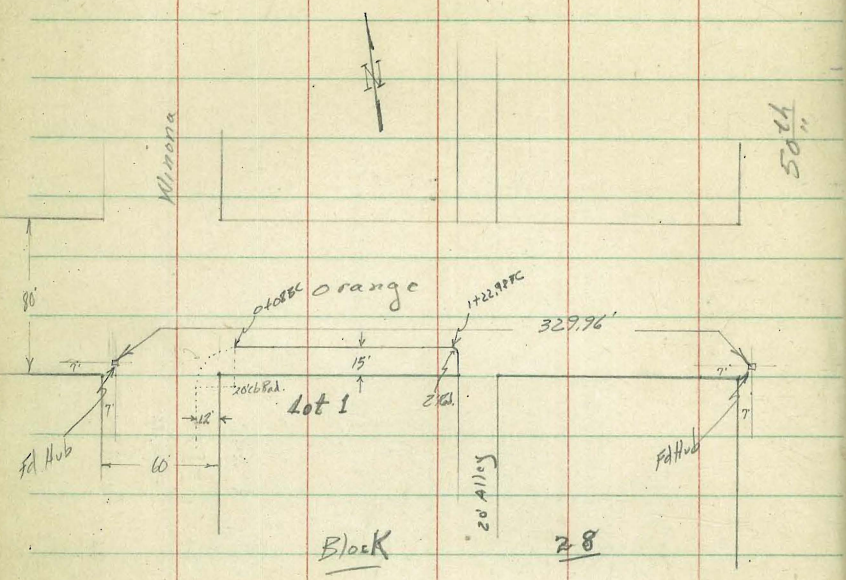 N
Winona
50th
80'
0+08 BC
Orange
1+22.98 EC
329.96'
7'
7'
15'
7'
7'
20' cb Rad.
Lot 1
2' Rad.
12'
Fd Hub
60'
20' Alley
Fd Hub
Block
28